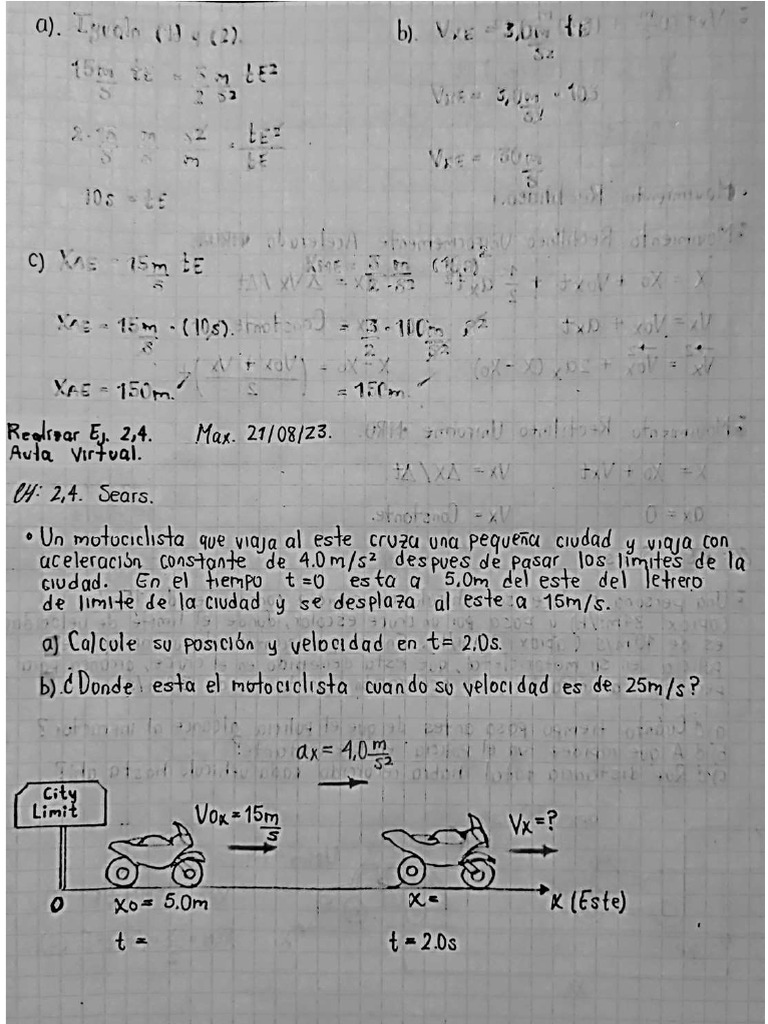 a). Igualo (1) y (2).
15m/s tE = 3/2 m/s² tE²
2·15/3 m/s s²/m = tE²/tE
10s = tE
b). VxE = 3,0m/s² tE
VxE = 3,0m/s² · 10s
VxE = 30m/s
c) XAE = 15m/s tE
XAE = 15m/s · (10s).
XAE = 150m. ✓
= 3/2 m/s² (10s)²
= 3/2 · 100m/s² s²
= 150m. ✓
Realizar Ej. 2,4. Max. 21/08/23.
Aula Virtual.
2,4. Sears.
• Un motociclista que viaja al este cruza una pequeña ciudad y viaja con
aceleración constante de 4.0m/s² despues de pasar los limites de la
ciudad. En el tiempo t=0 esta a 5.0m del este del letrero
de limite de la ciudad y se desplaza al este a 15m/s.
a) Calcule su posición y velocidad en t= 2,0s.
b).¿Donde esta el motociclista cuando su velocidad es de 25m/s?
ax = 4,0 m/s²
City
Limit
Vox = 15m/s
Vx = ?
0
xo = 5.0m
x =
x (Este)
t =
t = 2.0s